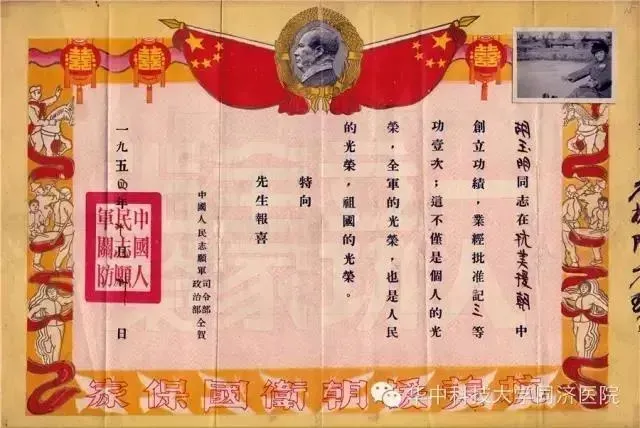 囍 囍 囍 囍
胡玉明同志在抗美援朝中
創立功績，業經批准記三等
功壹次；這不僅是個人的光
榮，全軍的光榮，也是人民
的光榮，祖國的光榮。
特向
先生報喜
中國人民志願軍
司令部
政治部
仝賀
一九五四年
日
中國人
民志願
軍關防
抗美援朝衛國保家
华中科技大学同济医院